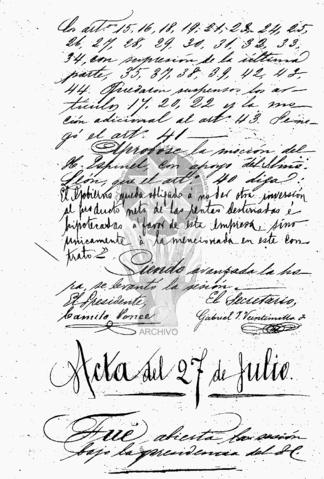 los artos 15, 16, 18, 19, 21, 23, 24, 25,
26, 27, 28, 29, 30, 31, 32, 33,
34, con supresión de la última
parte, 35, 37, 38, 39, 42, 43
44. Quedaron suspensos los ar-
tículos 17, 20, 22 y la mo
ción adicional al artº 43. Se ne-
gó el artº 41.
Aprobóse la moción del
H. Espinel con apoyo del
León, que el artº 40 diga:
El Gobierno queda obligado a no dar otra inversión
al producto neto de las rentas destinadas é
hipotecadas favor de esta empresa, sino
únicamente á la mencionada en este con-
trato."
Siendo avanzada la ho-
ra, se levantó la sesión.
El Presidente, El Secretario,
Camilo Ponce Gabriel I. Veintimilla
ARCHIVO
Acta del 27 de Julio.
Fué abierta la sesión
bajo la presidencia del H